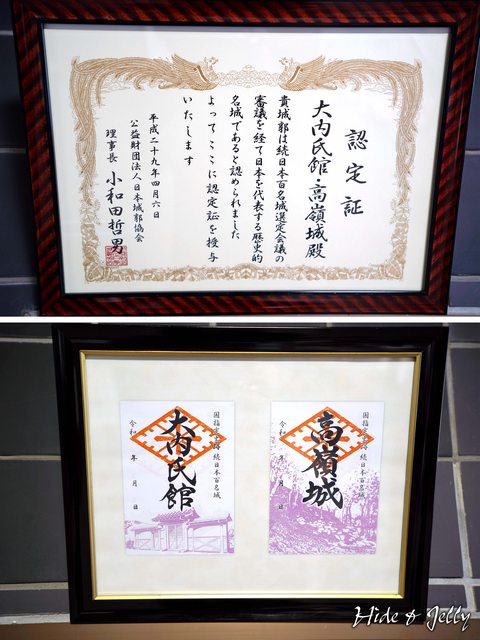 認定証
大内氏館・高嶺城殿
貴城郭は続日本百名城選定会議の
審議を経て日本を代表する歴史的
名城であると認められました
よってここに認定証を授与
いたします
平成二十九年四月六日
公益財団法人日本城郭協会
理事長 小和田哲男
続日本百名城
大内氏館
令和 年 月 日
国指定史跡 続日本百名城
高嶺城
令和 年 月 日
Hide & Jelly